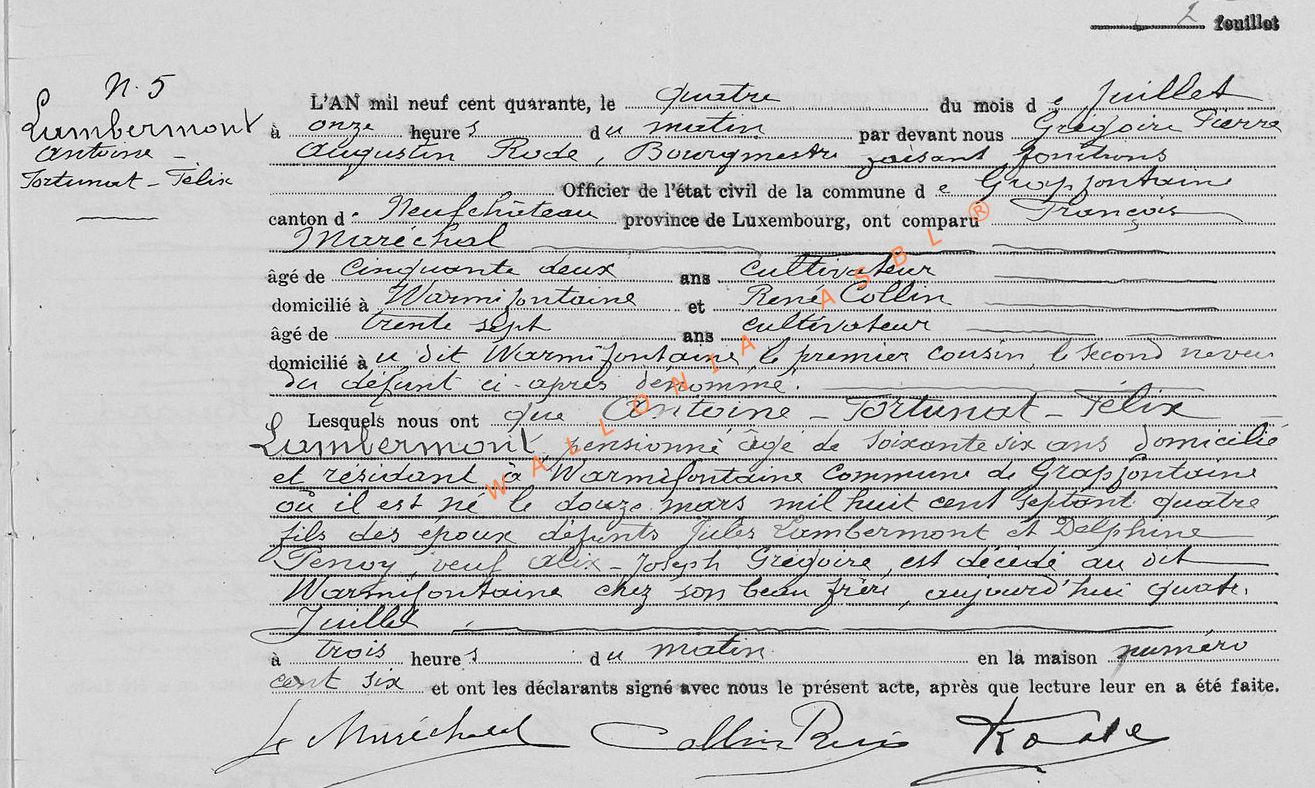 2 feuillet
N. 5
Lambermont
Antoine -
Fortunat - Félix
L'AN mil neuf cent quarante, le quatre du mois de Juillet
à onze heures du matin par devant nous Grégoire Pierre
Augustin Rode, Bourgmestre faisant fonctions
Officier de l'état civil de la commune de Grapfontaine
canton de Neufchâteau province de Luxembourg, ont comparu François
Maréchal
âgé de cinquante deux ans cultivateur
domicilié à Warmifontaine et René Collin
âgé de trente sept ans cultivateur
domicilié à u dit Warmifontaine, le premier cousin, le second neveu
du défunt ci-après dénommé.
Lesquels nous ont que Antoine - Fortunat - Félix
Lambermont, pensionné âgé de soixante six ans domicilié
et résidant à Warmifontaine commune de Grapfontaine
où il est né le douze mars mil huit cent septant quatre,
fils des époux défunts Jules Lambermont et Delphine
veuf Alix - Joseph Grégoire, est décédé au dit
Warmifontaine chez son beau frère, aujourd'hui quatre
Juillet
à trois heures du matin en la maison numéro
cent six et ont les déclarants signé avec nous le présent acte, après que lecture leur en a été faite.
Maréchal Collin René Rode
WALLONIA ASBL ®